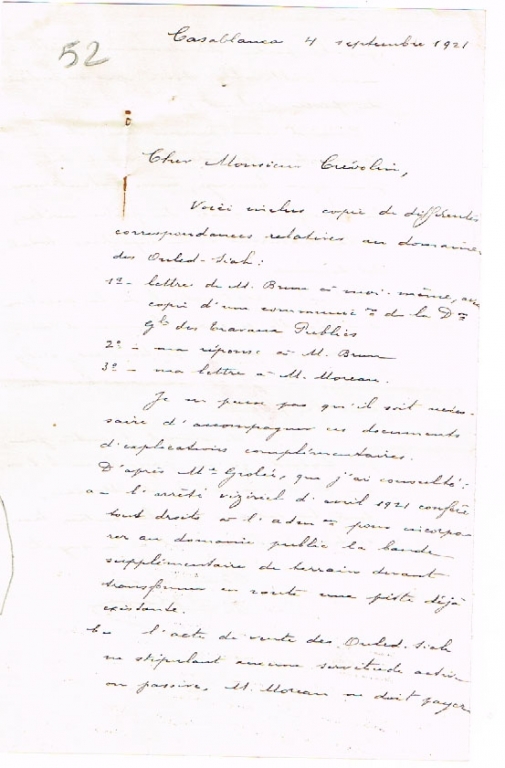 Casablanca 4 septembre 1921
52
Cher Monsieur Crévolin,
Voici inclus copie de différentes
correspondances relatives au domaine
des Ouled-Siah :
1º - lettre de M. Brun à moi-même, avec
copie d'une communicon de la Don
Gle des Travaux Publics
2º - ma réponse à M. Brun
3º - ma lettre à M. Moreau.
Je ne pense pas qu'il soit néces-
saire d'accompagner ces documents
d'explications complémentaires.
D'après Me Grolée, que j'ai consulté :
a - l'arrêté viziriel d'avril 1921 confère
tout droits à l'admon pour incorpo-
rer au domaine public la bande
supplémentaire de terrain devant
transformer en route une piste déjà
existante.
b - l'acte de vente des Ouled-Siah
ne stipulant aucune servitude active
ou passive, M. Moreau ne doit payer